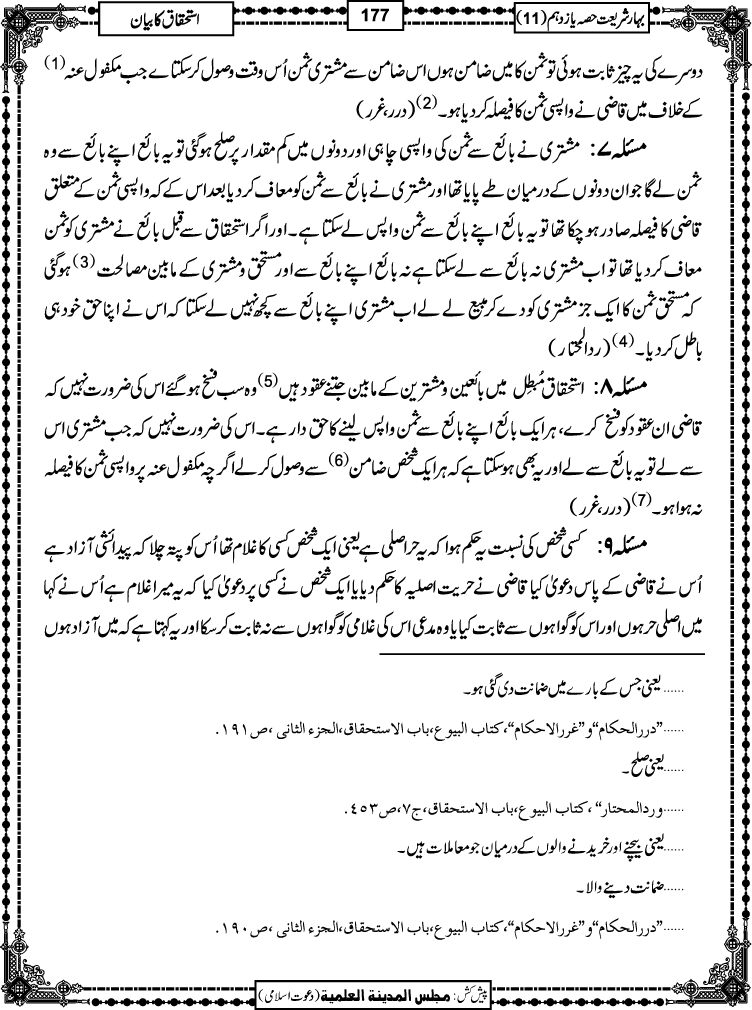 بہار شریعت حصہ یازدہم (11)
177
استحقاق کا بیان
دوسرے کی یہ چیز ثابت ہوئی تو ثمن کا میں ضامن ہوں اس ضامن سے مشتری ثمن اُس وقت وصول کر سکتا ہے جب مکفول عنہ (1)
کے خلاف میں قاضی نے واپسی ثمن کا فیصلہ کر دیا ہو۔ (2) (درر، غرر)
مسئلہ ۷: مشتری نے بائع سے ثمن کی واپسی چاہی اور دونوں میں کم مقدار پر صلح ہوگئی تو یہ بائع اپنے بائع سے وہ
ثمن لے گا جو ان دونوں کے درمیان طے پایا تھا اور مشتری نے بائع سے ثمن کو معاف کر دیا بعد اس کے کہ واپسی ثمن کے متعلق
قاضی کا فیصلہ صادر ہو چکا تھا تو یہ بائع اپنے بائع سے ثمن واپس لے سکتا ہے۔ اور اگر استحقاق سے قبل بائع نے مشتری کو ثمن
معاف کر دیا تھا تو اب مشتری نہ بائع سے لے سکتا ہے نہ بائع اپنے بائع سے اور مستحق و مشتری کے مابین مصالحت (3) ہوگئی
کہ مستحق ثمن کا ایک جز مشتری کو دے کر مبیع لے لے اب مشتری اپنے بائع سے کچھ نہیں لے سکتا کہ اس نے اپنا حق خود ہی
باطل کر دیا۔ (4) (ردالمحتار)
مسئلہ ۸: استحقاق مُبطِل میں بائعین و مشترین کے مابین جتنے عقود ہیں (5) وہ سب فسخ ہوگئے اس کی ضرورت نہیں کہ
قاضی ان عقود کو فسخ کرے، ہر ایک بائع اپنے بائع سے ثمن واپس لینے کا حق دار ہے۔ اس کی ضرورت نہیں کہ جب مشتری اس
سے لے تو یہ بائع سے لے اور یہ بھی ہو سکتا ہے کہ ہر ایک شخص ضامن (6) سے وصول کر لے اگرچہ مکفول عنہ پر واپسی ثمن کا فیصلہ
نہ ہوا ہو۔ (7) (درر، غرر)
مسئلہ ۹: کسی شخص کی نسبت یہ حکم ہوا کہ یہ حر اصلی ہے یعنی ایک شخص کسی کا غلام تھا اُس کو پتہ چلا کہ پیدائشی آزاد ہے
اُس نے قاضی کے پاس دعویٰ کیا قاضی نے حریت اصلیہ کا حکم دیا یا ایک شخص نے کسی پر دعویٰ کیا کہ یہ میرا غلام ہے اُس نے کہا
میں اصلی حر ہوں اور اس کو گواہوں سے ثابت کیا یا وہ مدعی اس کی غلامی کو گواہوں سے نہ ثابت کر سکا اور یہ کہتا ہے کہ میں آزاد ہوں
......یعنی جس کے بارے میں ضمانت دی گئی ہو۔
......”دررالحكام“و”غررالاحكام“،كتاب البيوع،باب الاستحقاق،الجزء الثانى ،ص١٩١.
......یعنی صلح۔
......وردالمحتار“ ،كتاب البيوع،باب الاستحقاق،ج٧،ص٤٥٣.
......یعنی بیچنے اور خریدنے والوں کے درمیان جو معاملات ہیں۔
......ضمانت دینے والا۔
......”دررالحكام“و”غررالاحكام“،كتاب البيوع،باب الاستحقاق،الجزء الثانى ،ص١٩٠.
پیش کش: مجلس المدینۃ العلمیۃ (دعوت اسلامی)